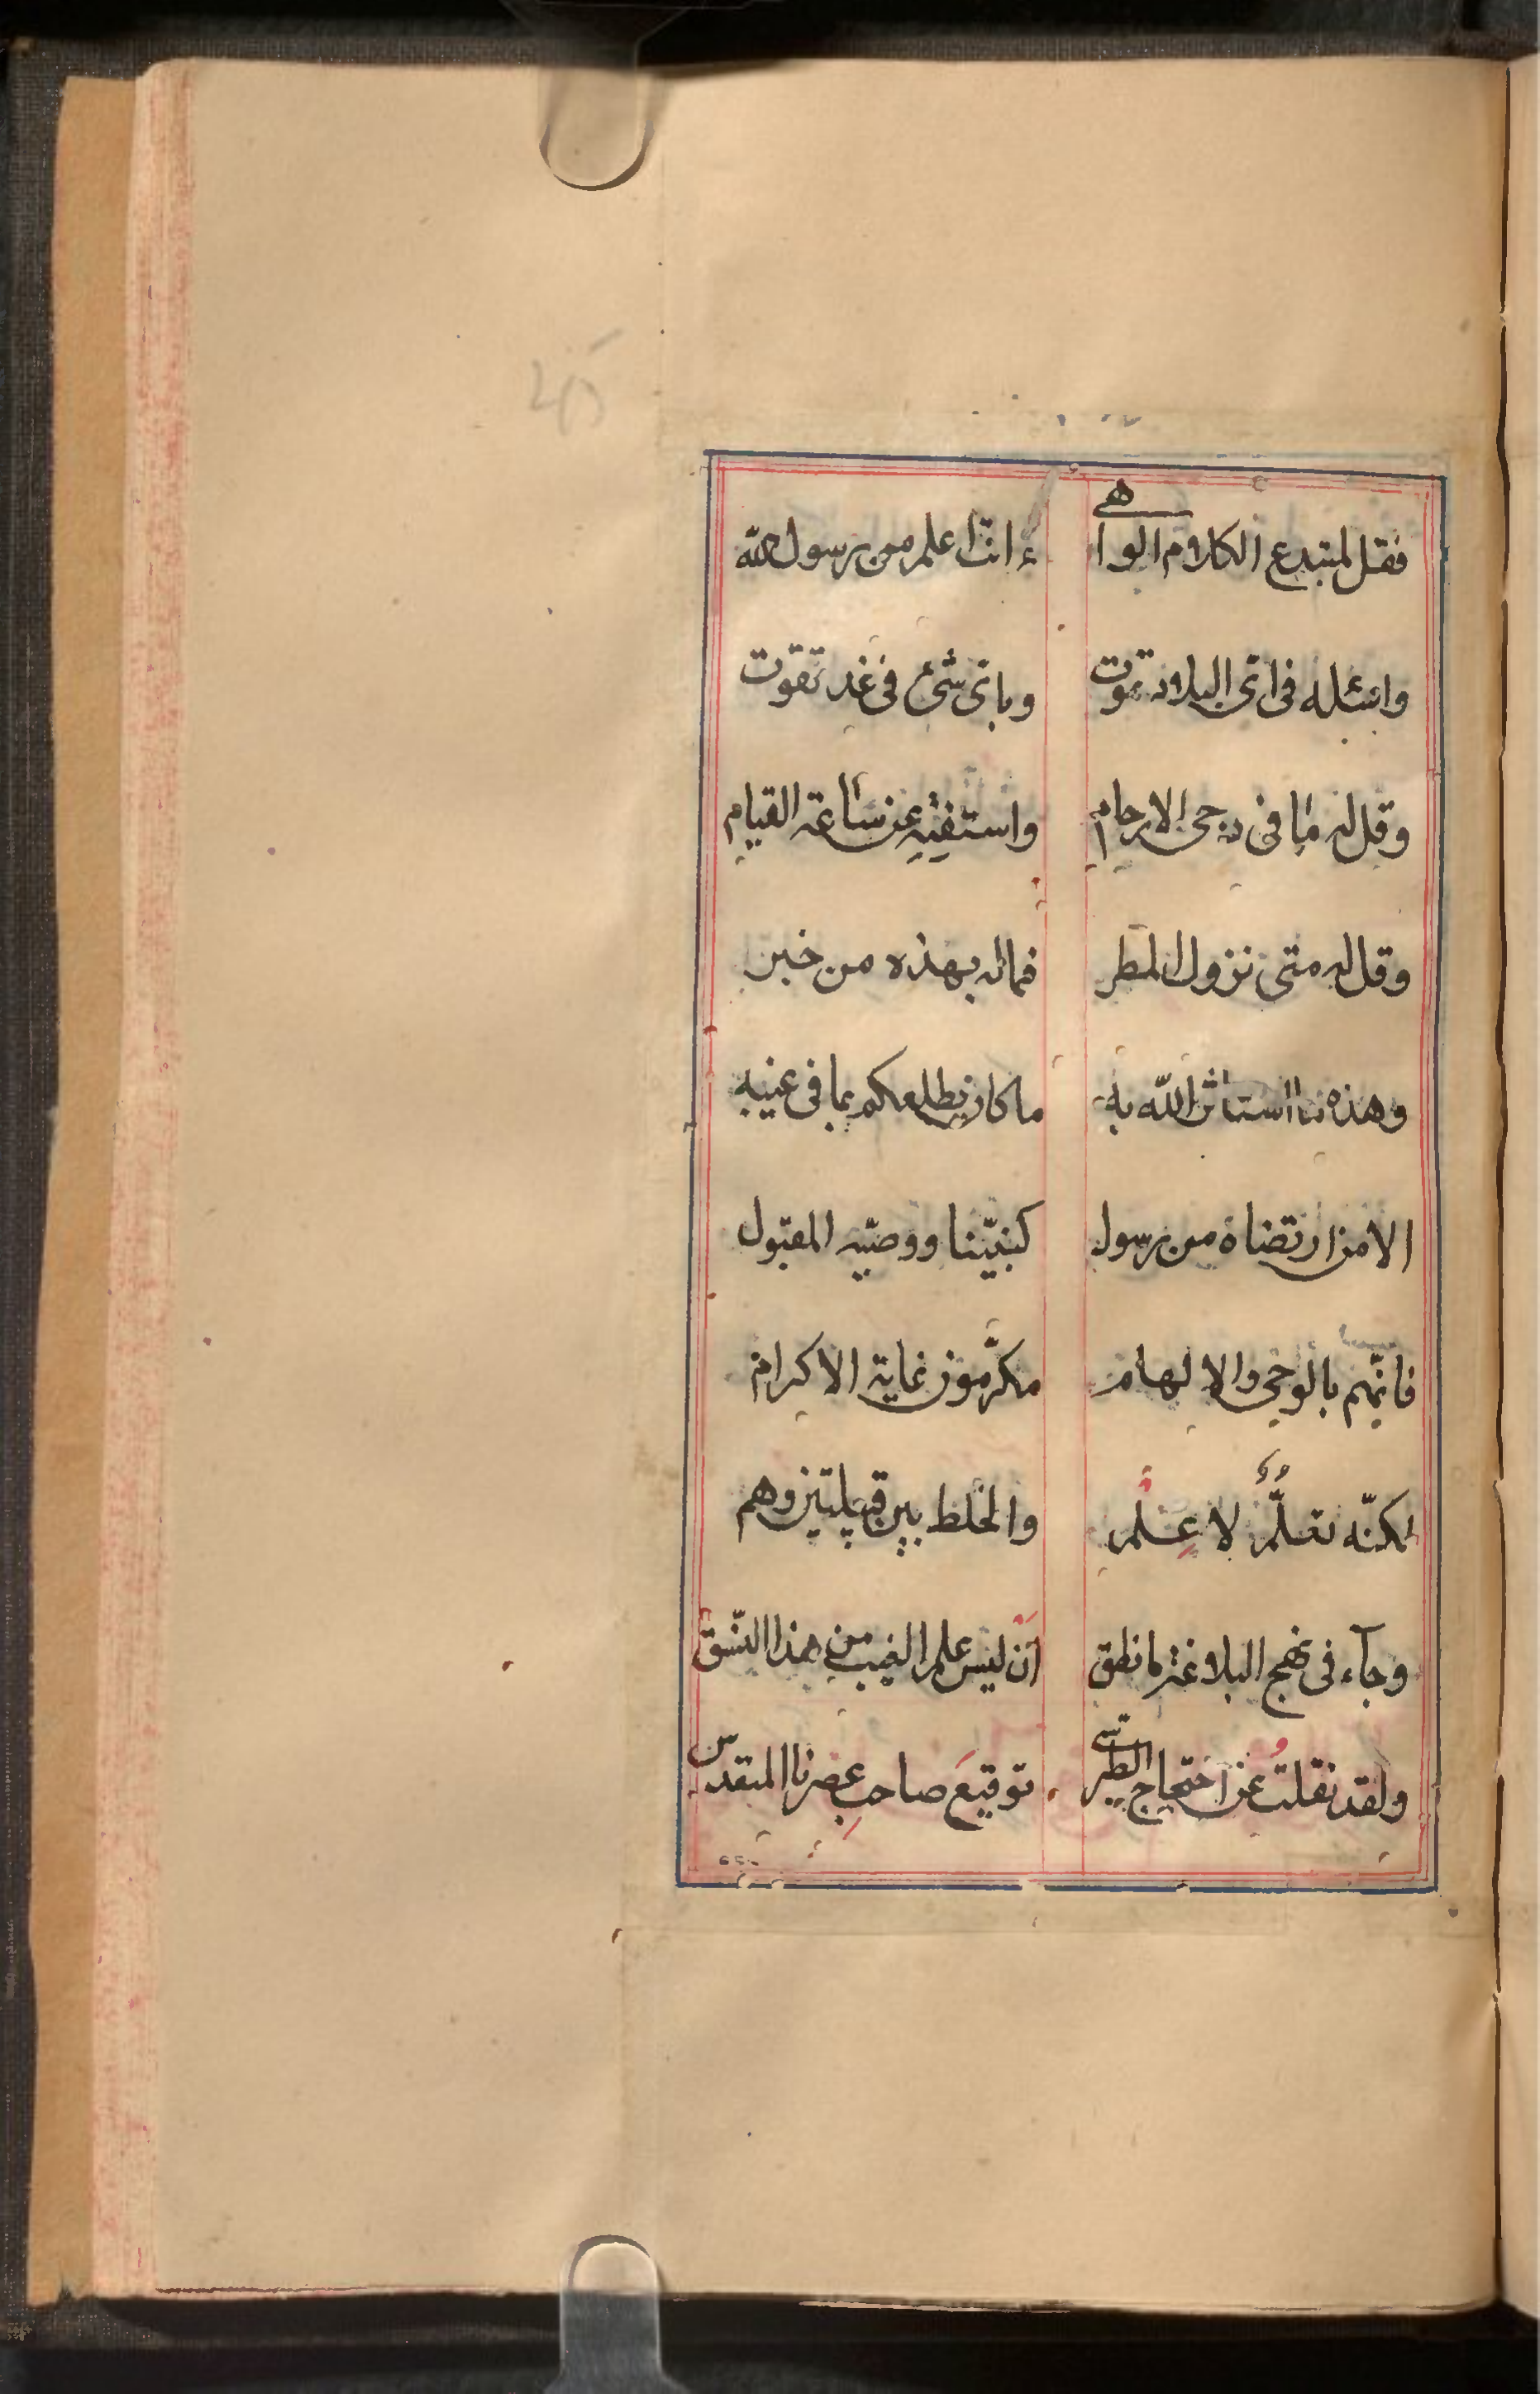 فقل لمبتدع الكلام الواهي ءانت اعلم من رسول الله
واسئله في اي البلاد تموت وباي شيء في غد تقوت
وقل له ما في دجى الارحام واستفته عن ساعة القيام
وقل له متى نزول المطر فما له بهذه من خبر
وهذه مما استاثر الله به ما كان يطلعكم بما في غيبه
الا من ارتضاه من رسول كنبيّنا ووصيّه المقبول
فانّهم بالوحي والالهام مكرّمون غاية الاكرام
لكنّه تعلّمٌ لا عِلْم والخلط بين قبيلتين وهم
وجآء في نهج البلاغة ما نطق اَنْ ليس علم الغيب من هذا النّسق
ولقد نقلتُ عن احتجاج الطبرسي توقيعَ صاحبِ عصرنا المتقدس